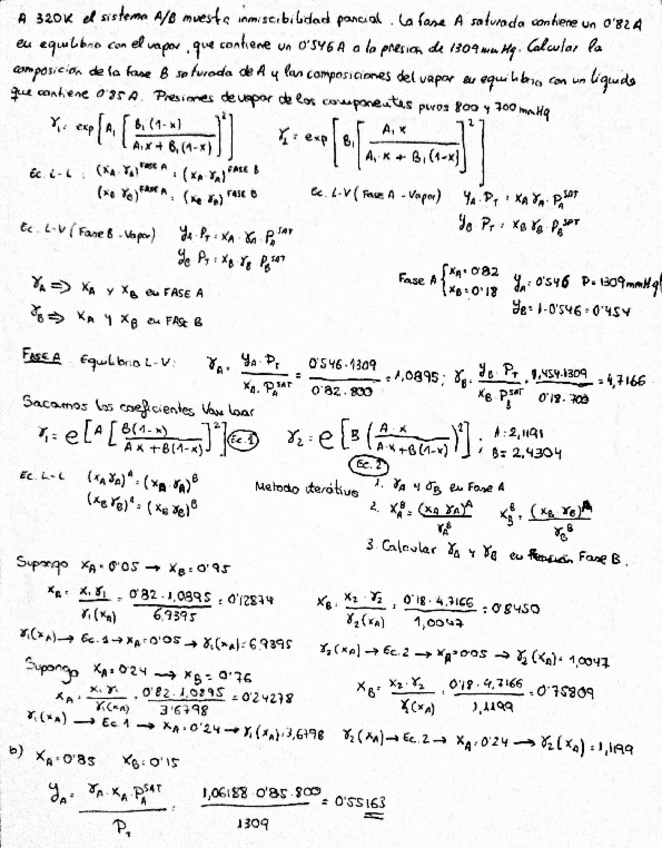 A 320K el sistema A/B muestra inmiscibilidad parcial. La fase A saturada contiene un 0'82A
en equilibrio con el vapor, que contiene un 0'546A a la presión de 1309mmHg. Calcular la
composición de la fase B saturada de A y las composiciones del vapor en equilibrio con un líquido
que contiene 0'85A. Presiones de vapor de los componentes puros 800 y 700 mmHg
γ₁ = exp[A₁[B₁(1-x)/(A₁x + B₁(1-x))]²] γ₂ = exp[B₁[A₁x/(A₁·x + B₁(1-x))]²]
Ec. L-L: (xA·γA)^FASE A = (xA·γA)^FASE B
(xB γB)^FASE A = (xB γB)^FASE B
Ec. L-V (Fase A - Vapor) yA·PT = xA γA·PA^SAT
yB PT = xB γB·PB^SAT
Ec. L-V (Fase B - Vapor) yA·PT = xA·γA·PA^SAT
yB PT = xB γB PB^SAT
Fase A { xA = 0'82 xB = 0'18 yA = 0'546 P = 1309mmHg
yB = 1-0'546 = 0'454
γA ⇒ xA y xB en FASE A
γB ⇒ xA y xB en FASE B
FASE A Equilibrio L-V: γA = yA·PT/(xA·PA^SAT) = 0'546·1309/(0'82·800) = 1,0895; γB = yB·PT/(xB·PB^SAT) = 0,454·1309/(0'18·700) = 4,7166
Sacamos los coeficientes Van Laar
γ₁ = e[A[B(1-x)/(Ax+B(1-x))]²] (Ec.1) γ₂ = e[B(A·x/(A·x+B(1-x)))²] (Ec.2) ; A = 2,1191 ; B = 2,4304
Ec. L-L (xA γA)^A = (xA γA)^B
(xB γB)^A = (xB γB)^B
Metodo iterativo 1. γA y γB en Fase A
2. xA^B = (xA γA)^A/γA^B xB^B = (xB γB)^A/γB^B
3. Calcular γA y γB en Fase B.
Supongo xA = 0'05 → xB = 0'95
xA = x₁γ₁/γ₁(xA) = 0'82·1,0895/6,9395 = 0'12874 xB = x₂·γ₂/γ₂(xA) = 0'18·4,7166/1,0047 = 0'8450
γ₁(xA) → Ec.1 → xA = 0'05 → γ₁(xA) = 6,9395 γ₂(xA) → Ec.2 → xA = 0'05 → γ₂(xA) = 1,0047
Supongo xA = 0'24 → xB = 0'76
xA = x₁·γ₁/γ₁(xA) = 0'82·1,0895/3'6798 = 0'24278 xB = x₂·γ₂/γ(xA) = 0'18·4,7166/1,1199 = 0'75809
γ₁(xA) → Ec.1 → xA = 0'24 → γ₁(xA) = 3,6798 γ₂(xA) → Ec.2 → xA = 0'24 → γ₂(xA) = 1,1199
b) xA = 0'85 xB = 0'15
yA = γA·xA·PA^SAT/PT = 1,06188·0'85·800/1309 = 0'55163